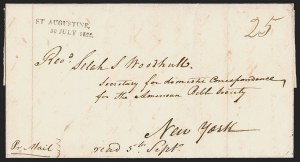 ST. AUGUSTINE,
30 JULY 1825.
25
Revd. Selah S Woodhull.
Secretary for domestic Correspondence
for the American Bible Society
New York
Pr Mail
recd 5th Sept